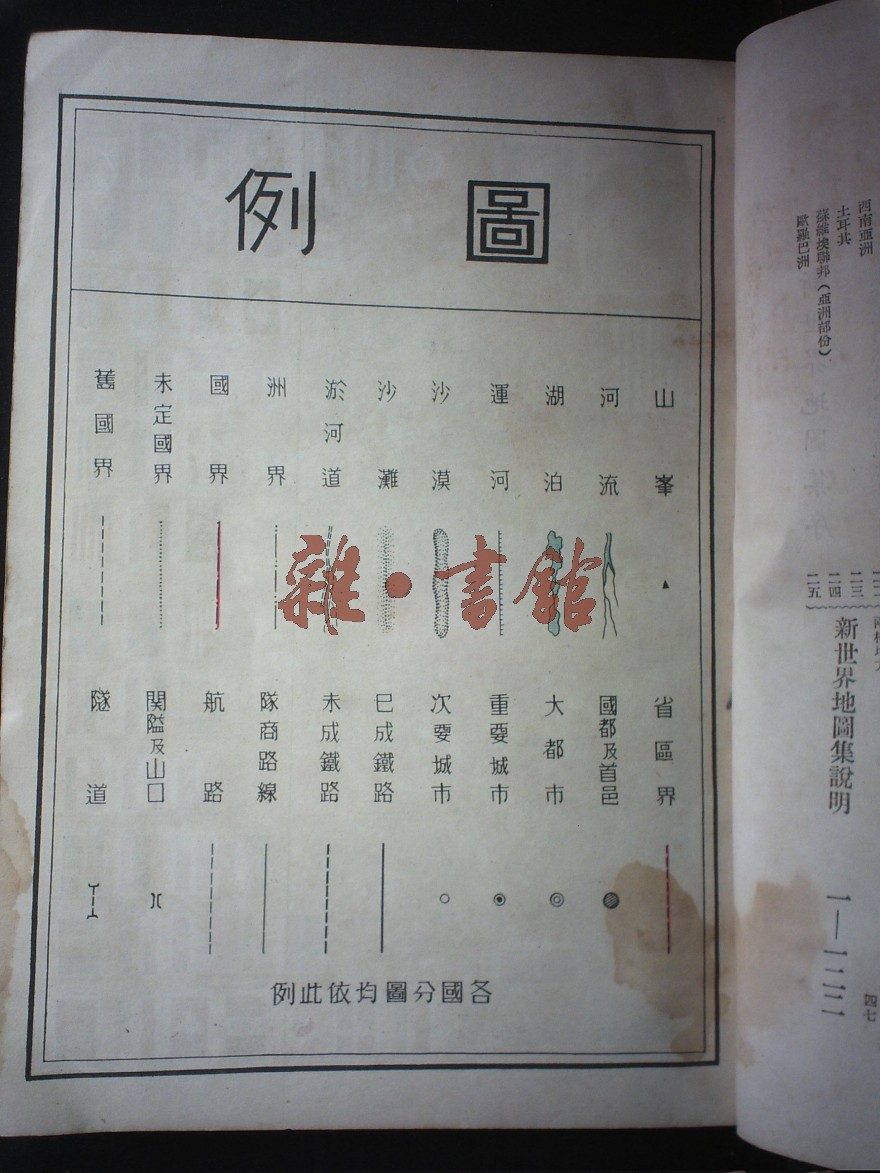 圖例
山峯
河流
湖泊
運河
沙漠
沙灘
淤河道
洲界
國界
未定國界
舊國界
省區界
國都及首邑
大都市
重要城市
次要城市
巳成鐵路
未成鐵路
隊商路線
航路
関隘及山口
隧道
各國分圖均依此例
雜·書館
西南亞洲
土耳其
蘇維埃聯邦(亞洲部份)
歐羅巴洲
二三
二四
二五
新世界地圖集說明
一—一二二
四七